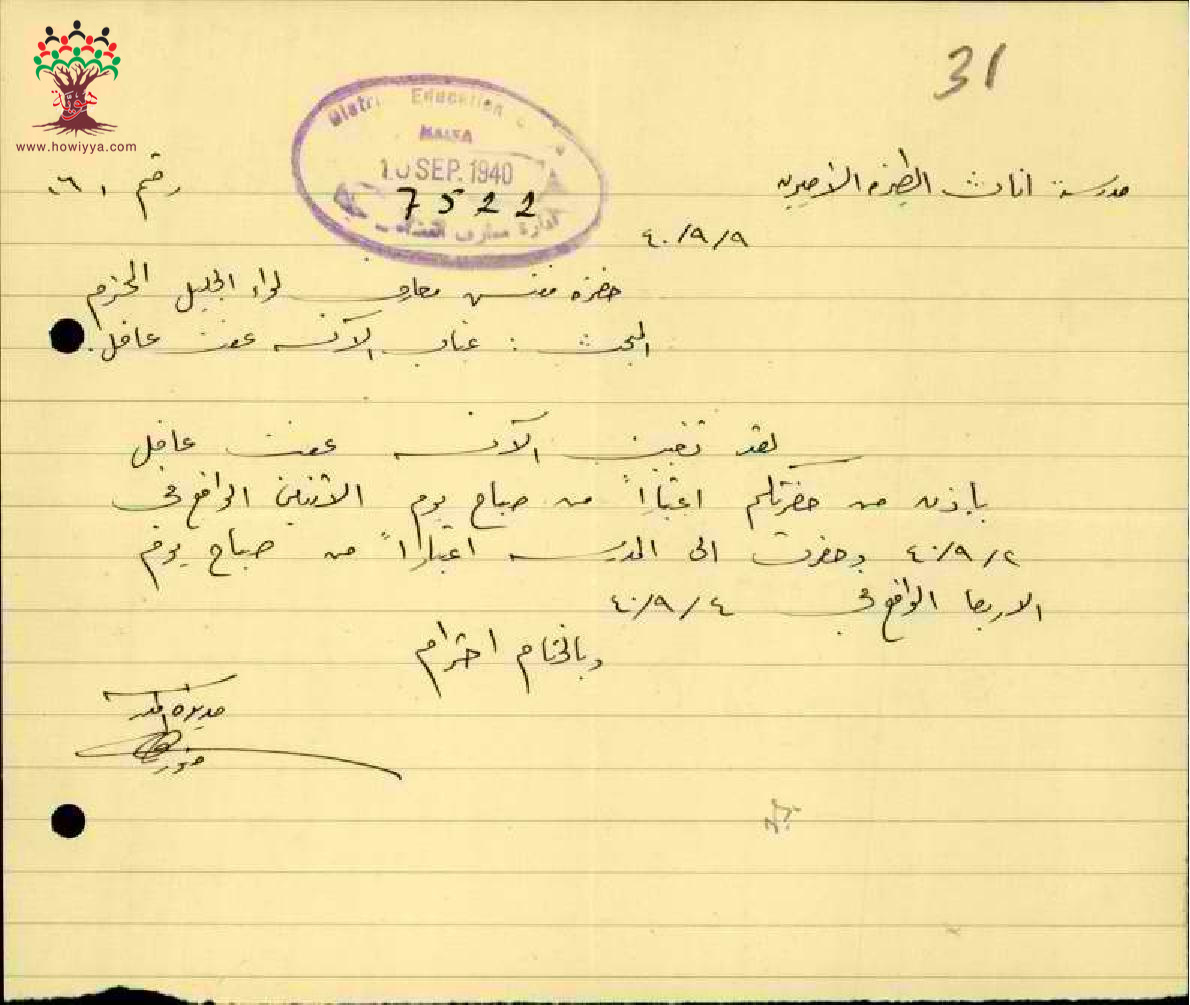 هوية
www.howiyya.com
31
Distri Education
HAIFA
10 SEP. 1940
7522
ادارة معارف
مدرسة اناث الطيره الاميريه
رقم ٦١
٤٠/٩/٩
حضرة مفتش معارف لواء الجليل المحترم
المبحث : غياب الآنسه عفت عاقل.
لقد تغيبت الآنسه عفت عاقل
باذن من حضرتكم اعتباراً من صباح يوم الاثنين الواقع في
٤٠/٩/٢ وحضرت الى المدرسه اعتباراً من صباح يوم
الاربعا الواقع في ٤٠/٩/٤
وبالختام احترام
مديرة